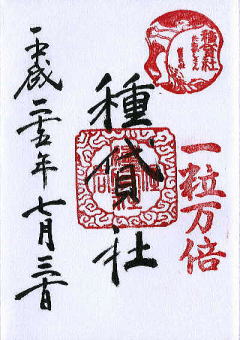 種貸社
一粒万倍
種貸社
平成二五年七月三十日